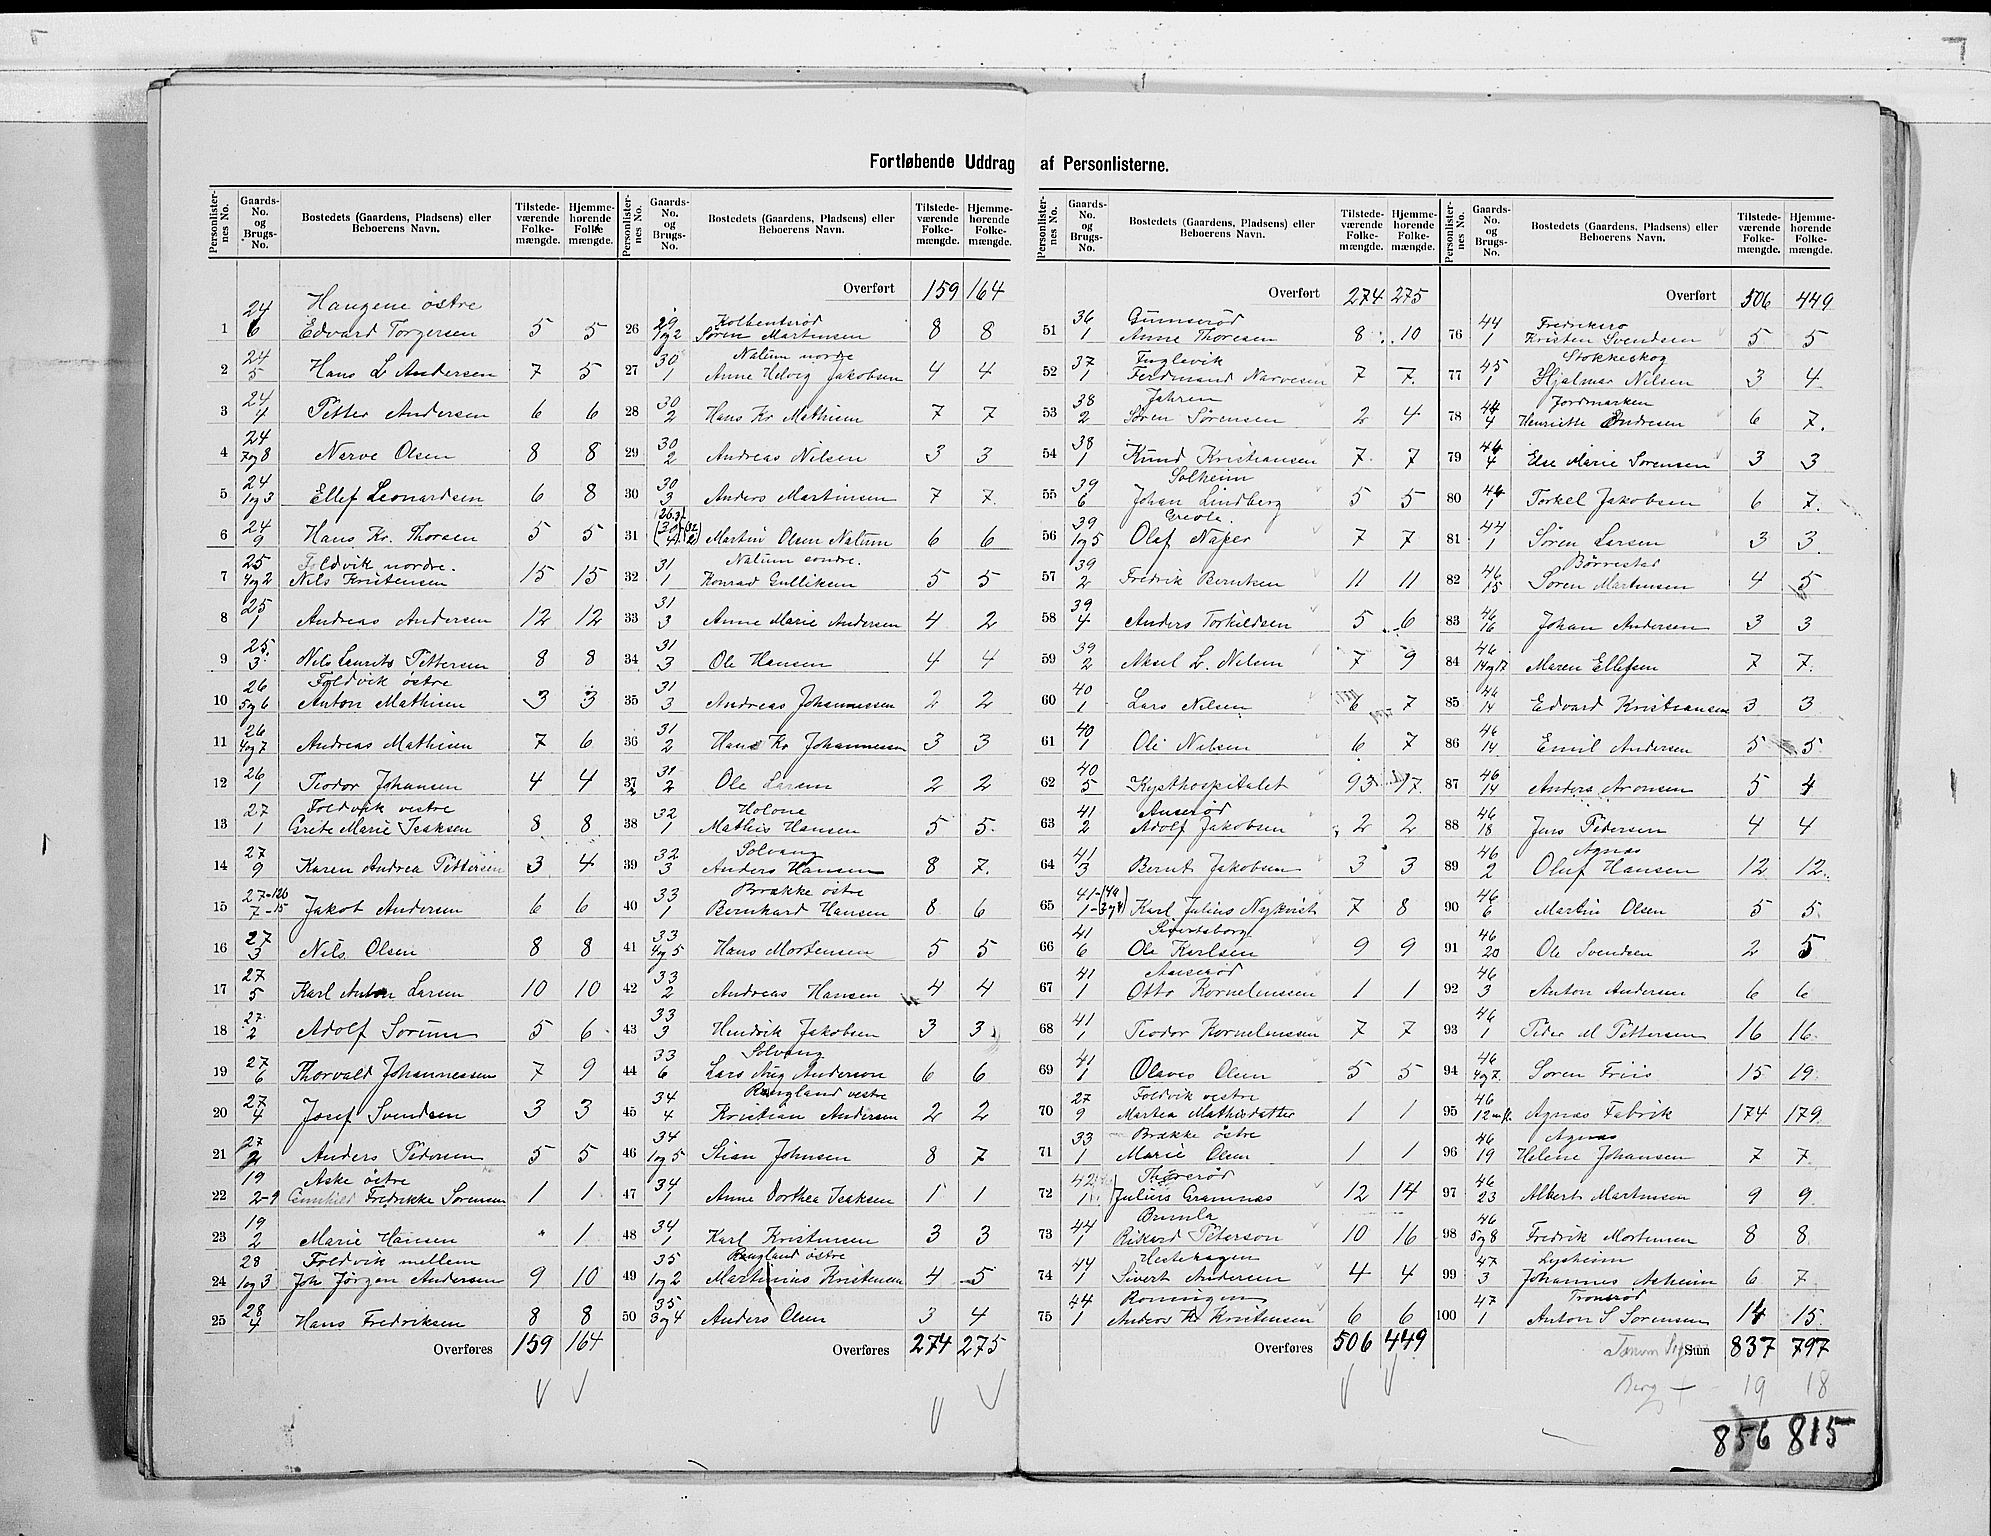 Fortløbende Uddrag af Personlisterne.
Personlisternes No. Gaards-No. og Brugs-No. Bostedets (Gaardens, Pladsens) eller Beboerens Navn. Tilstedeværende Folkemængde. Hjemmehørende Folkemængde.
24 Haugene østre
1 6 Edvard Torgersen 5 5
2 24 5 Hans L Andersen 7 5
3 24 4 Petter Andersen 6 6
4 24 7og8 Narve Olsen 8 8
5 24 1og3 Ellef Leonardsen 6 8
6 24 9 Hans Kr. Thorsen 5 5
25 Foldvik nordre.
7 4og2 Nils Kristensen 15 15
8 25 1 Andreas Andersen 12 12
9 25. 3 Nils Laurits Pettersen 8 8
26 Foldvik østre
10 5og6 Anton Mathisen 3 3
11 26 4og7 Andreas Mathisen 7 6
12 26 1 Teodor Johansen 4 4
27 Foldvik vestre
13 1 Grete Marie Isaksen 8 8
14 27 9 Karen Andrea Pettersen 3 4
15 27-126 7-15 Jakob Andersen 6 6
16 27 3 Nils Olsen 8 8
17 27 5 Karl Anton Larsen 10 10
18 27 2 Adolf Sorum 5 6
19 27 6 Thorvald Johannessen 7 9
20 27 4 Josef Svendsen 3 3
21 27 Anders Pedersen 5 5
19 Aske østre
22 2-9 Gunhild Fredrikke Sorensen 1 1
23 19 2 Marie Hansen " 1
28 Foldvik mellem
24 1og3 Joh Jørgen Andersen 9 10
25 28 4 Hans Fredriksen 8 8
Overføres 159 164
Overført 159 164
29 Kolbensrød
26 1og2 Søren Martinsen 8 8
30 Natum nordre
27 1 Anne Helvig Jakobsen 4 4
28 30 2 Hans Kr Mathisen 7 7
29 30 2 Andreas Nilsen 3 3
30 30 3 Anders Martinsen 7 7.
31 Martin Olsen Natum 6 6
31 Natum søndre.
32 1 Konrad Gulliksen 5 5
33 31 3 Anne Marie Andersen 4 2
34 31 3 Ole Hansen 4 4
35 31 3 Andreas Johannessen 2 2
36 31 2 Hans Kr Johannessen 3 3
37 31 2 Ole Larsen 2 2
32 Holone
38 1 Mathis Hansen 5 5.
32 Solvang
39 3 Anders Hansen 8 7.
33 Brække østre
40 1 Bernhard Hansen 8 6
41 33 4og5 Hans Mortensen 5 5
42 33 2 Andreas Hansen 4 4
43 33 3 Hendrik Jakobsen 3 3
33 Solvang
44 6 Lars Aug Anderson 6 6
34 Rangland vestre
45 4 Kristian Andersen 2 2
46 34 1og5 Stian Johnsen 8 7
47 34 1 Anne Dorthea Isaksen 1 1
48 34 1 Karl Kristensen 3 3
35 Rangland østre
49 1og2 Martinius Kristensen 4 5
50 35 3og4 Anders Olsen 3 4
Overføres 274 275
Overført 274 275
36 Gunnerød
51 1 Anne Thoresen 8 10
37 Fuglevik
52 1 Ferdinand Narvesen 7 7.
38 Jahren
53 2 Søren Sørensen 2 4
54 38 1 Knud Kristiansen 7 7
39 Solheim
55 6 Johan Lindberg 5 5
39 Greole.
56 1og5 Olaf Naper 7 7
57 39 2 Fredrik Berntsen 11 11
58 39 4 Anders Torkildsen 5 6
59 39 2 Aksel L. Nilsen 7 9
60 40 1 Lars Nilsen 6 7
61 40 1 Ole Nilsen 6 7
62 40 5 Kysthospitalet 93 17.
41 Auserød
63 2 Adolf Jakobsen 2 2
64 41 3 Bernt Jakobsen 3 3
65 41 Karl Julius Nykvist 7 8
41 Sivertsborg
66 6 Ole Karlsen 9 9
41 Auserød
67 1 Otto Korneliussen 1 1
68 41 1 Teodor Korneliussen 7 7
69 41 1 Olaves Olsen 5 5
27 Foldvik vestre
70 9 Martea Mathisdatter 1 1
33 Brække østre
71 1 Marie Olsen 1 1
42 Thorerød
72 1 Julius Gramnæs 12 14
44 Brunla
73 1 Rikard Peterson 10 16
44 Hestehagen
74 1 Sivert Andersen 4 4
44 Roningen
75 1 Anders Kr Kristensen 6 6
Overføres 506 449
Overført 506 449
44 Fredriksro
76 1 Kristen Svendsen 5 5
45 Stokkeskog
77 1 Hjalmar Nilsen 3 4
44 Jordmarken
78 4 Henriette Andresen 6 7.
79 44 4 Else Marie Sorensen 3 3
80 44 1 Torkel Jakobsen 6 7.
81 44 1 Søren Larsen 3 3
46 Børrestad
82 15 Søren Martinsen 4 5
83 46 16 Johan Andersen 3 3
84 46 14og17 Maren Ellefsen 7 7.
85 46 14 Edvard Kristiansen 3 3
86 46 14 Emil Andersen 5 5
87 46 14 Anders Aronsen 5 4
88 46 18 Jens Pedersen 4 4
46 Agnæs
89 2 Oluf Hansen 12 12.
90 46 6 Martin Olsen 5 5
91 46 20 Ole Svendsen 2 5
92 46 3 Anton Andersen 6 6
93 46 1 Peder M Pettersen 16 16.
94 46 4og7. Søren Friis 15 19.
95 46 12 Agnæs Fabrik 174 179.
46 Agnæs
96 19 Helene Johansen 7 7.
97 46 23 Albert Martinsen 9 9.
98 46 5og8 Fredrik Mortensen 8 8
47 Lysheim
99 3 Johannes Asheim 6 7
47 Tronsrød
100 1 Anton S Sorensen 14 15.
Sum 837 797
Berg + 19 18
856 815